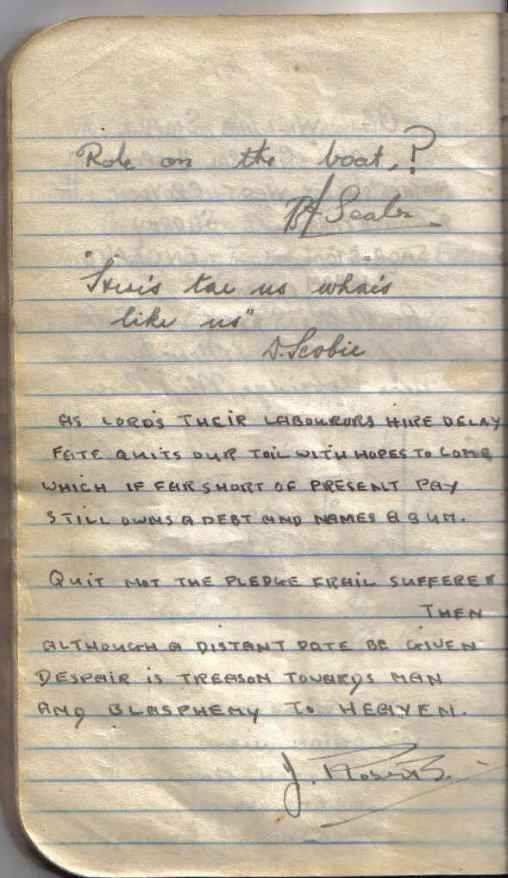 Role on the boat,?
"Heris tae us whais
like us"
D. Scobie
AS LORDS THEIR LABOURORS HIRE DELAY
FATE QUITS OUR TOIL WITH HOPES TO COME
WHICH IF FAR SHORT OF PRESENT PAY
STILL OWNS A DEBT AND NAMES A SUM.
QUIT NOT THE PLEDGE FRAIL SUFFERER
THEN
ALTHOUGH A DISTANT DATE BE GIVEN
DESPAIR IS TREASON TOWARDS MAN
AND BLASPHEMY TO HEAVEN.
J. Roberts.